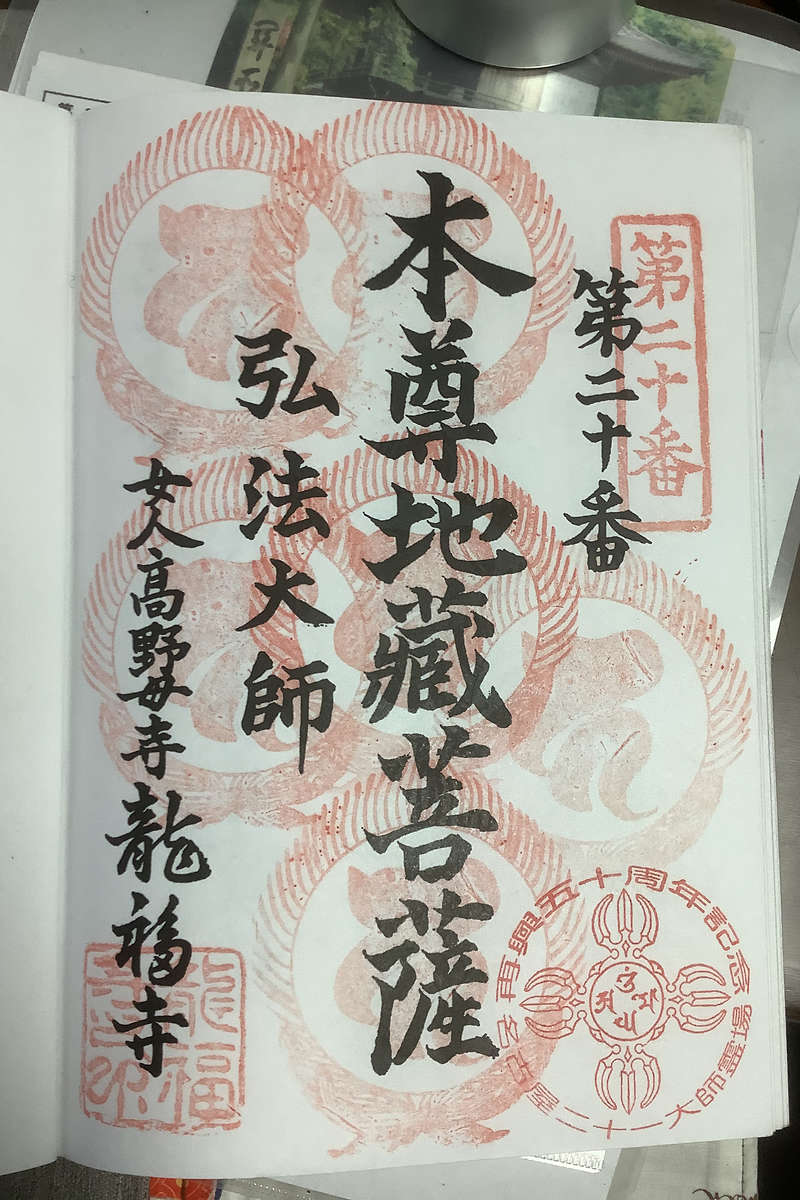 第二十番
第二十番
本尊地藏菩薩
弘法大師
女人高野丗寺龍福寺
再興五十周年記念
名古屋二十一大師霊場
龍福寺印